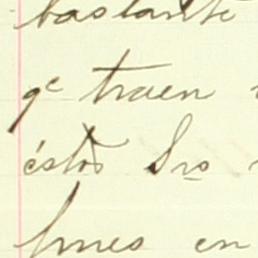 bastante
qe traen
éstos Srs
fines en